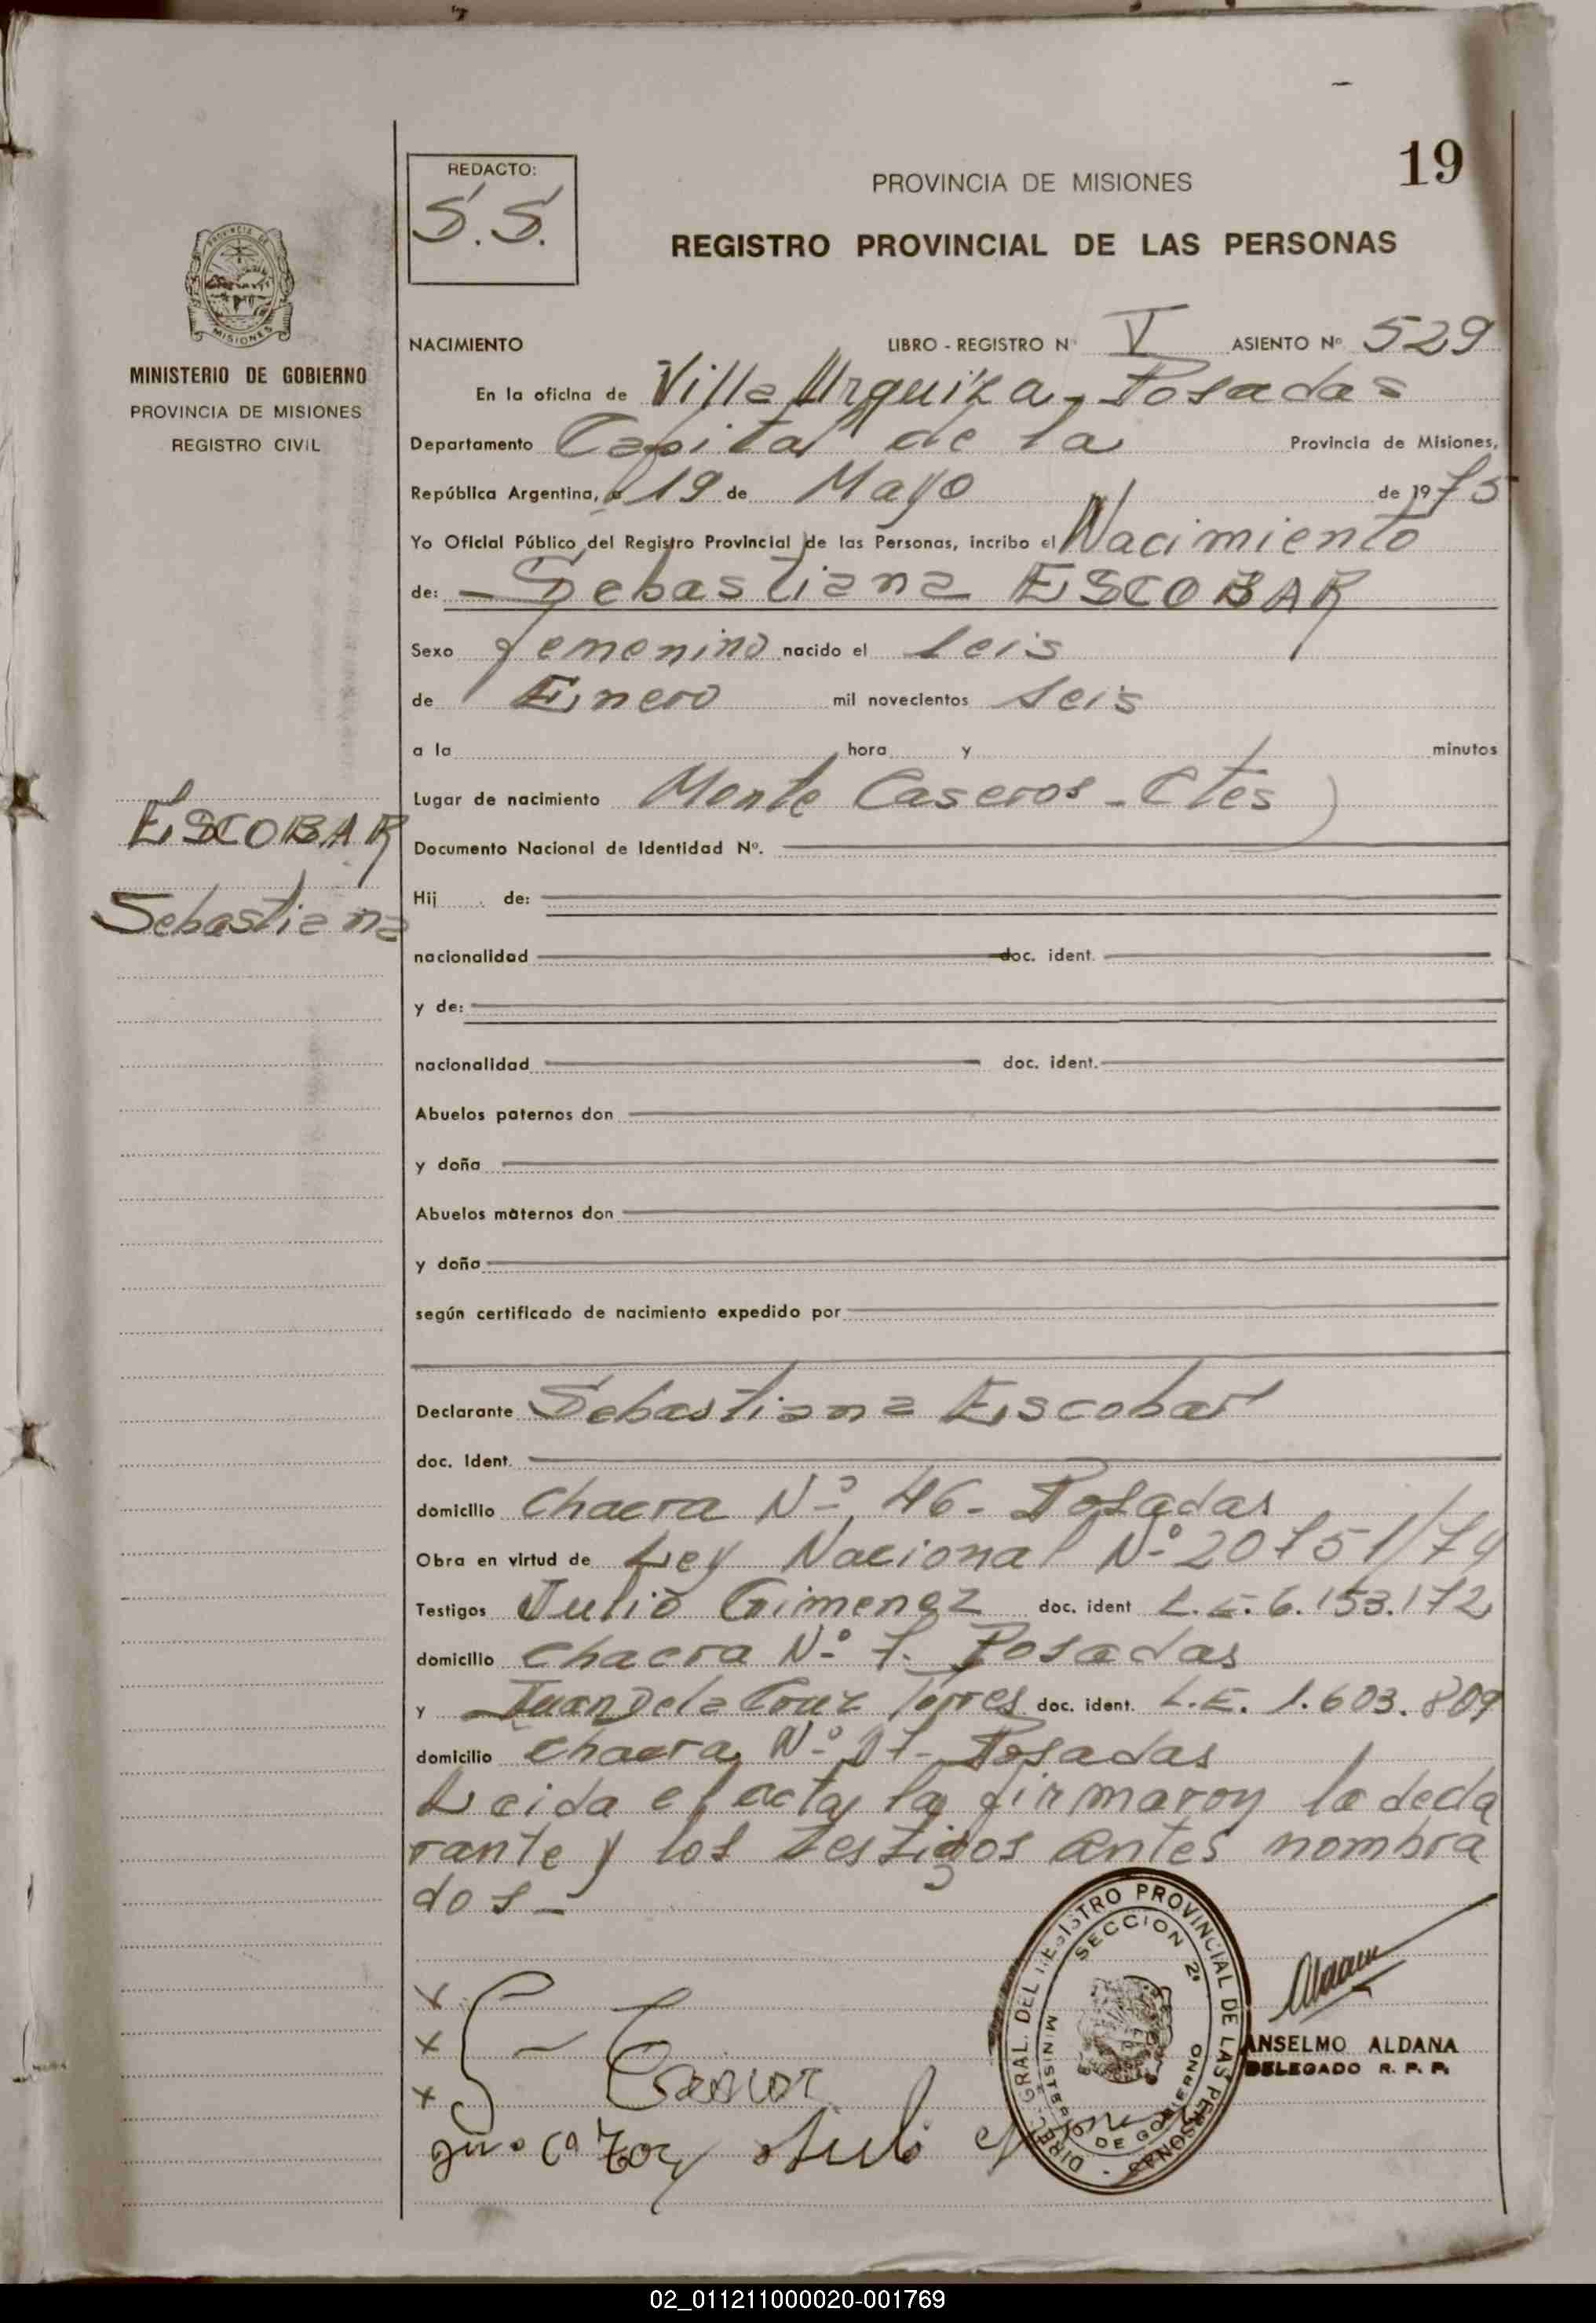 19
REDACTO:
S.S.
PROVINCIA DE MISIONES
REGISTRO PROVINCIAL DE LAS PERSONAS
PROVINCIA DE MISIONES
MINISTERIO DE GOBIERNO
PROVINCIA DE MISIONES
REGISTRO CIVIL
ESCOBAR
Sebastiana
NACIMIENTO LIBRO - REGISTRO Nº V ASIENTO Nº 529
En la oficina de Villa Urquiza - Posadas
Departamento Capital de la Provincia de Misiones,
República Argentina, a 19 de Mayo de 1975
Yo Oficial Público del Registro Provincial de las Personas, incribo el Nacimiento
de: - Sebastiana ESCOBAR
Sexo femenino nacido el seis
de Enero mil novecientos seis
a la hora y minutos
Lugar de nacimiento Monte Caseros - Ctes
Documento Nacional de Identidad Nº.
Hij de:
nacionalidad doc. ident.
y de:
nacionalidad doc. ident.
Abuelos paternos don
y doña
Abuelos maternos don
y doña
según certificado de nacimiento expedido por
Declarante Sebastiana Escobar
doc. Ident.
domicilio Chacra Nº 46 - Posadas
Obra en virtud de Ley Nacional Nº 20751/74
Testigos Julio Gimenez doc. ident L.E. 6.153.172
domicilio chacra Nº 7. Posadas
y Juan De la Cruz Torres doc. ident. L.E. 1.603.809
domicilio chacra Nº 17 - Posadas
Leida el acta, la firmaron la decla
rante y los testigos antes nombra
dos -
DIREC. GRAL. DEL REGISTRO PROVINCIAL DE LAS PERSONAS
SECCION 2ª
MINISTERIO DE GOBIERNO
ANSELMO ALDANA
DELEGADO R. P. P.
02_011211000020-001769